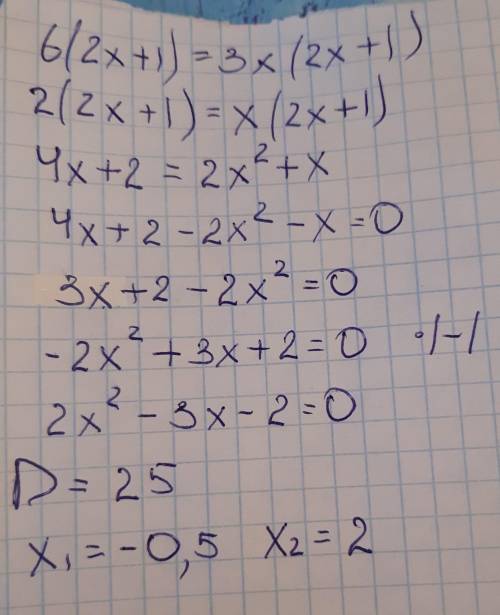 6(2x+1)=3x(2x+1)
2(2x+1)=x(2x+1)
4x+2=2x²+x
4x+2-2x²-x=0
3x+2-2x²=0
-2x²+3x+2=0 ·|-1
2x²-3x-2=0
D=25
x₁=-0,5 x₂=2